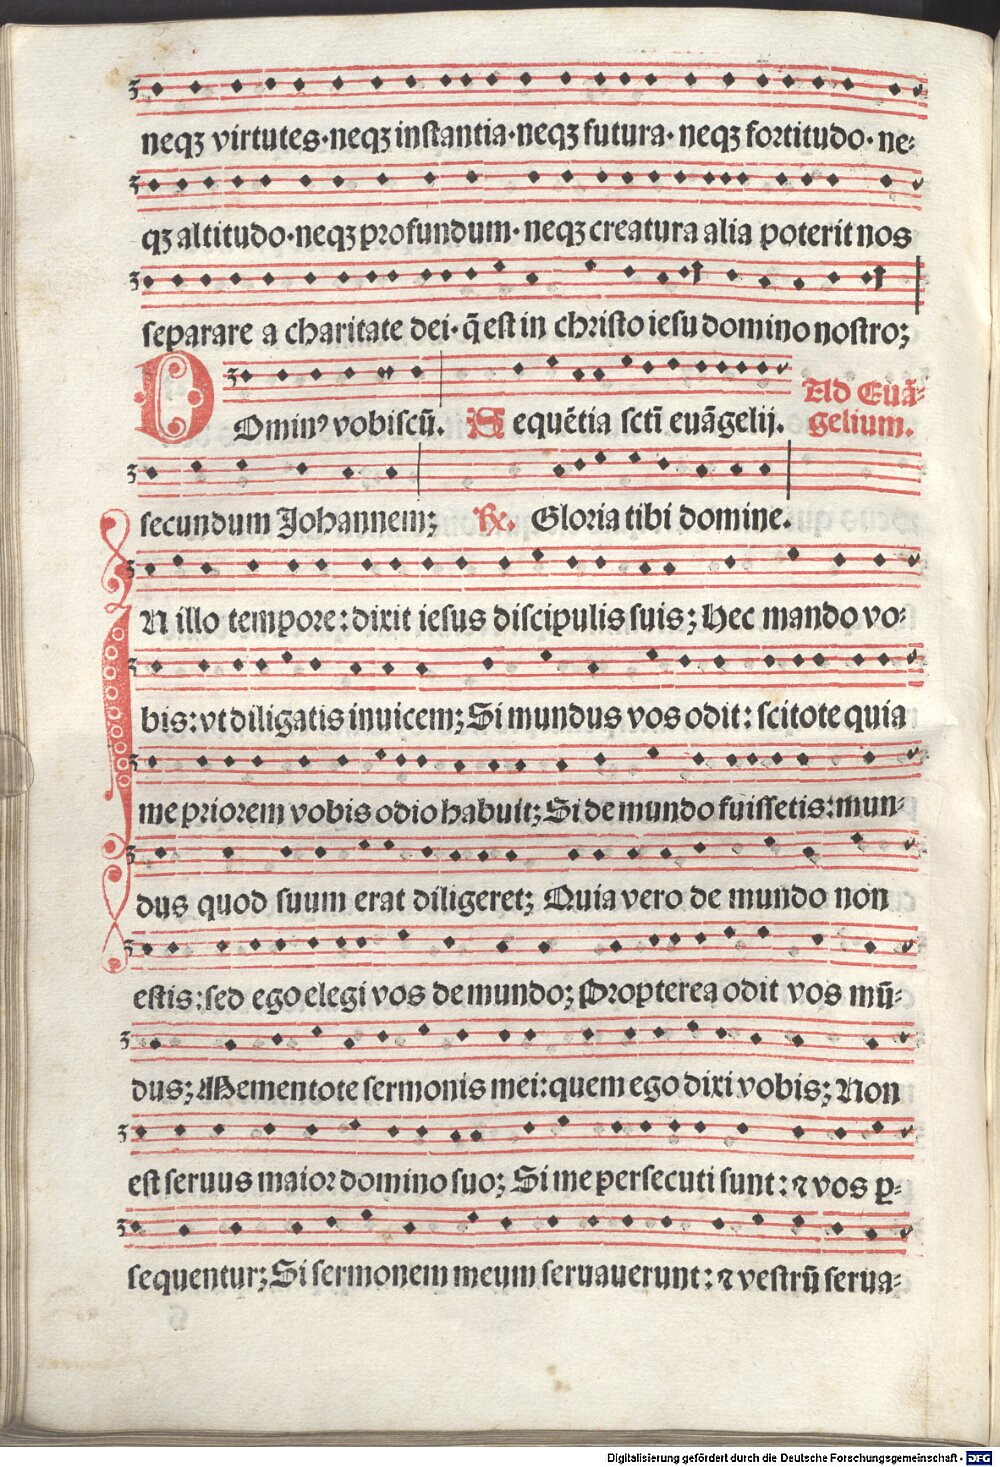 neqꝫ virtutes·neqꝫ instantia·neqꝫ futura· neqꝫ fortitudo· ne⸗
qꝫ altitudo·neqꝫ profundum· neqꝫ creatura alia poterit nos
separare a charitate dei· q̄ est in christo iesu domino nostro;
DOminꝰ vobiscū. Sequētia scti̅ euāgelij. Ad Euā⸗
gelium.
secundum Johannem; ℞. Gloria tibi domine.
IN illo tempore: dixit iesus discipulis suis; Hec mando vo⸗
bis: vt diligatis inuicem; Si mundus vos odit: scitote quia
me priorem vobis odio habuit; Si de mundo fuissetis: mun⸗
dus quod suum erat diligeret; Quia vero de mundo non
estis: sed ego elegi vos de mundo; Propterea odit vos mū⸗
dus; Mementote sermonis mei: quem ego dixi vobis; Non
est seruus maior domino suo; Si me persecuti sunt: ⁊ vos ꝑ⸗
sequentur; Si sermonem meum seruauerunt: ⁊ vestrū serua⸗
Digitalisierung gefördert durch die Deutsche Forschungsgemeinschaft - DFG